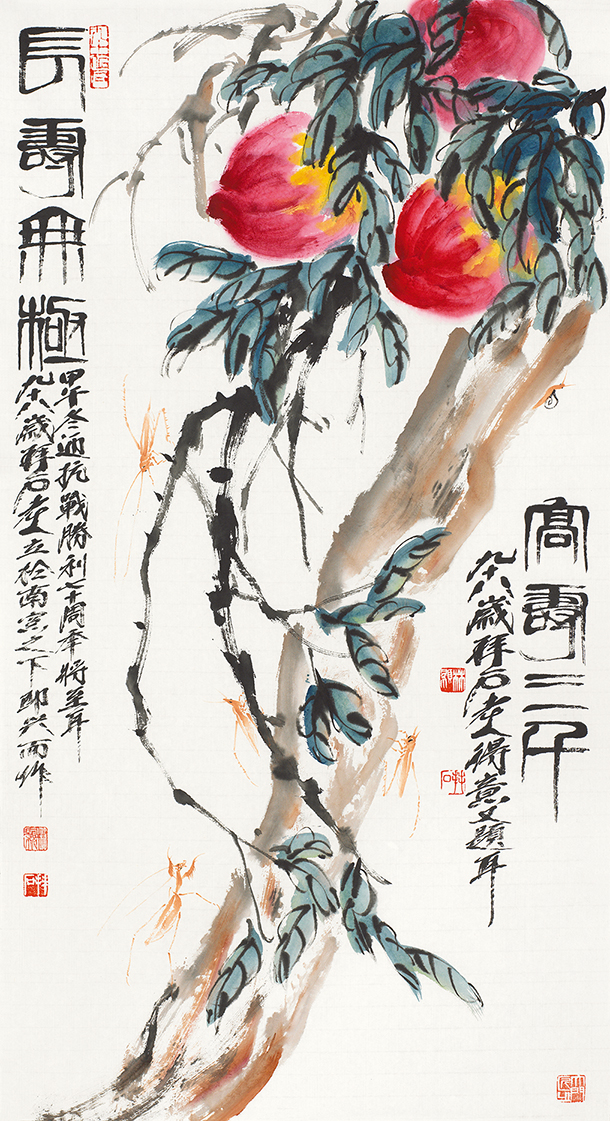 高壽二千
九十八歲拜石老人得意又題耳
長壽無極
甲午冬迎抗戰勝利七十周年將至耳
九十八歲拜石老人立於南京之下即兴而作